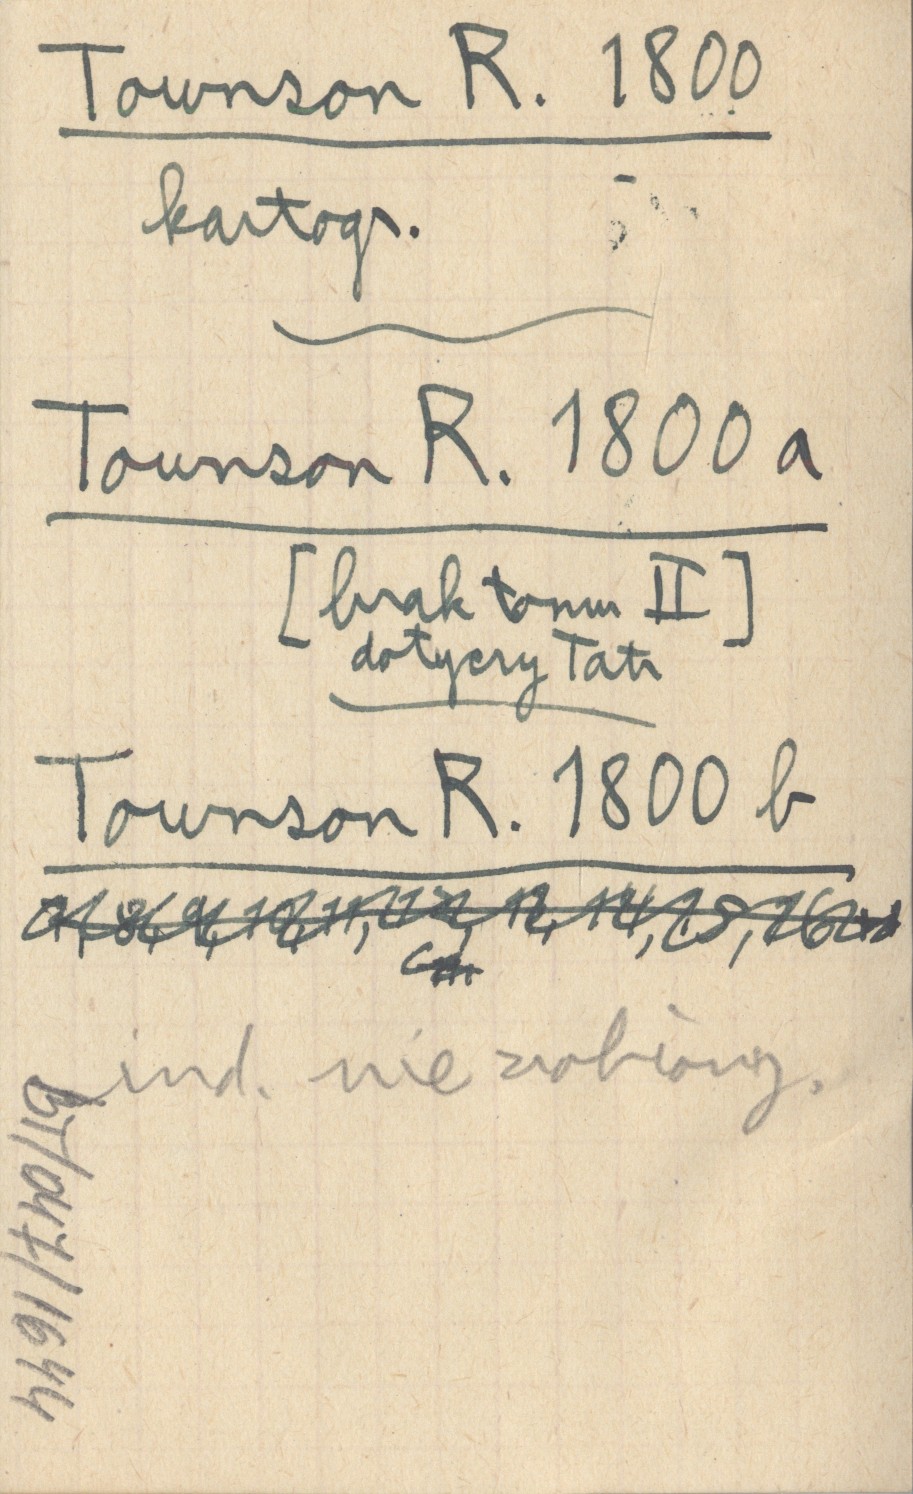 Townson R. 1800
kartogr.
Townson R. 1800 a
[brak tomu II]
dotyczy Tatr
Townson R. 1800 b
ind. nie zrobiony.
BT/047/1644